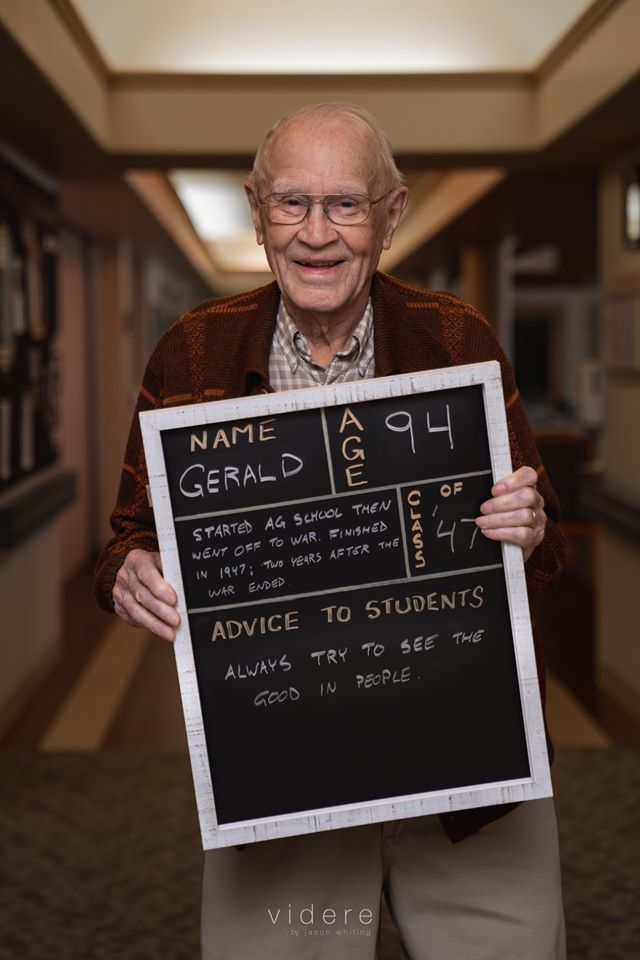 NAME
GERALD
AGE
94
STARTED AG SCHOOL THEN
WENT OFF TO WAR. FINISHED
IN 1947; TWO YEARS AFTER THE
WAR ENDED.
CLASS
OF
'47
ADVICE TO STUDENTS
ALWAYS TRY TO SEE THE
GOOD IN PEOPLE.
videre
by jason whiting